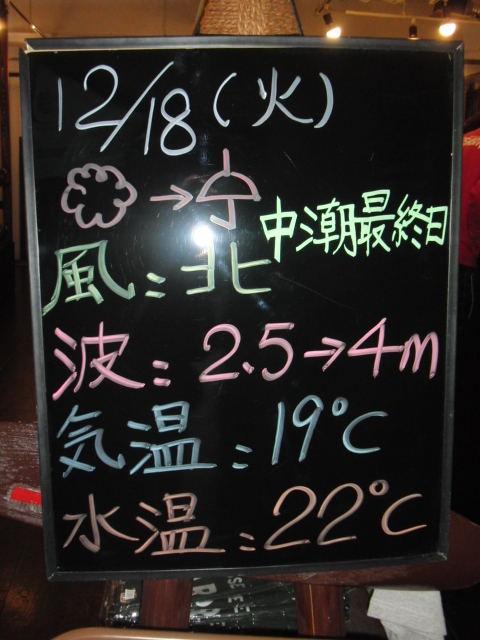 12/18(火)
→
中潮最終日
風:北
波:2.5→4m
気温:19℃
水温:22℃